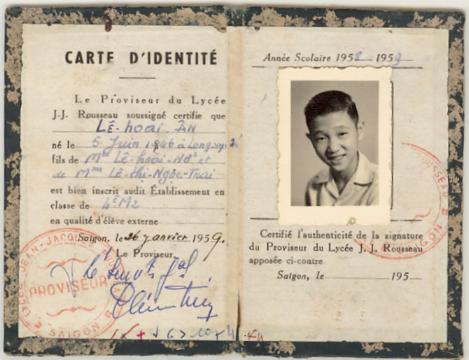 CARTE D'IDENTITÉ
Le Proviseur du Lycée
J.-J. ROUSSEAU soussigné certifie que
LÊ-hoài-ÂN
né le 5 Juin 1946 à
fils de Mr Lê-hoài-Nở et
de Mme Lê-thị-Ngọc-Trai
est bien inscrit audit Établissement en
classe de 4e M2
en qualité d'élève externe
Saigon, le 26 janvier 1959.
Le Proviseur,
LYCÉE JEAN-JACQUES
PROVISEUR
SAIGON
Année Scolaire 1958 - 1959
Certifié l'authenticité de la signature
du Proviseur du Lycée J. J. Rousseau
apposée ci-contre.
Saigon, le 195